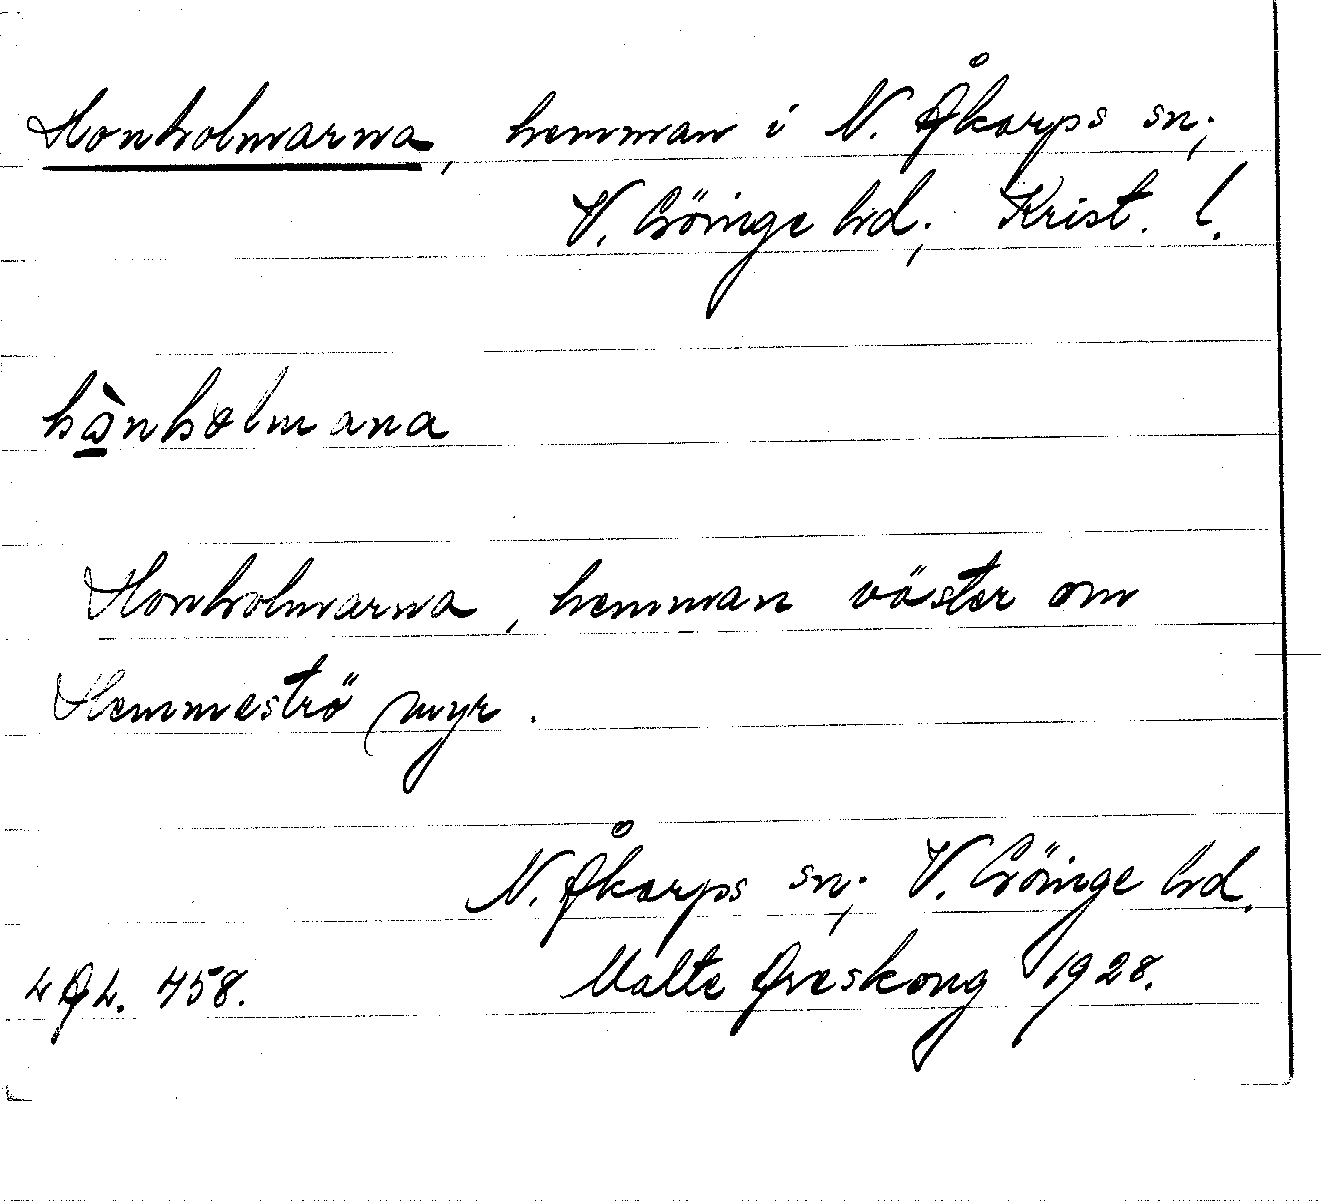 Honholmarna, hemman i N. Åkarps sn;
V. Göinge hd; Krist. l.
hònholmana
Honholmarna, hemman väster om
Hemmeströ myr.
N. Åkarps sn; V. Göinge hd.
Malte Areskong 1928.
LAL. 458.